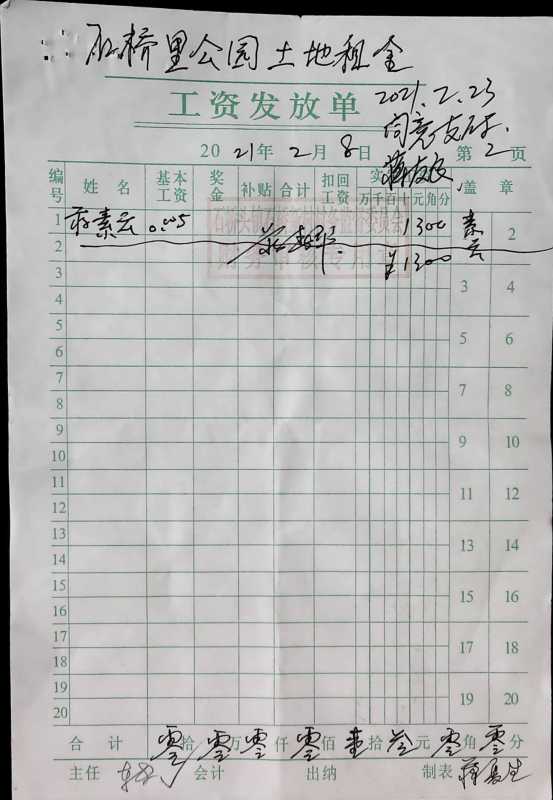 石桥里公园土地租金
工资发放单
2021.2.23
同意支付.
2021年2月8日 第2页
编号 姓名 基本工资 奖金 补贴 合计 扣回工资 实 万千百十元角分 盖章
1 蒋素云 0.005 1300 素云 2
2 ¥1300
3 3 4
4
5 5 6
6
7 7 8
8
9 9 10
10
11 11 12
12
13 13 14
14
15 15 16
16
17 17 18
18
19 19 20
20
合计 零拾零万零仟零佰壹拾叁元零角零分
主任 会计 出纳 制表